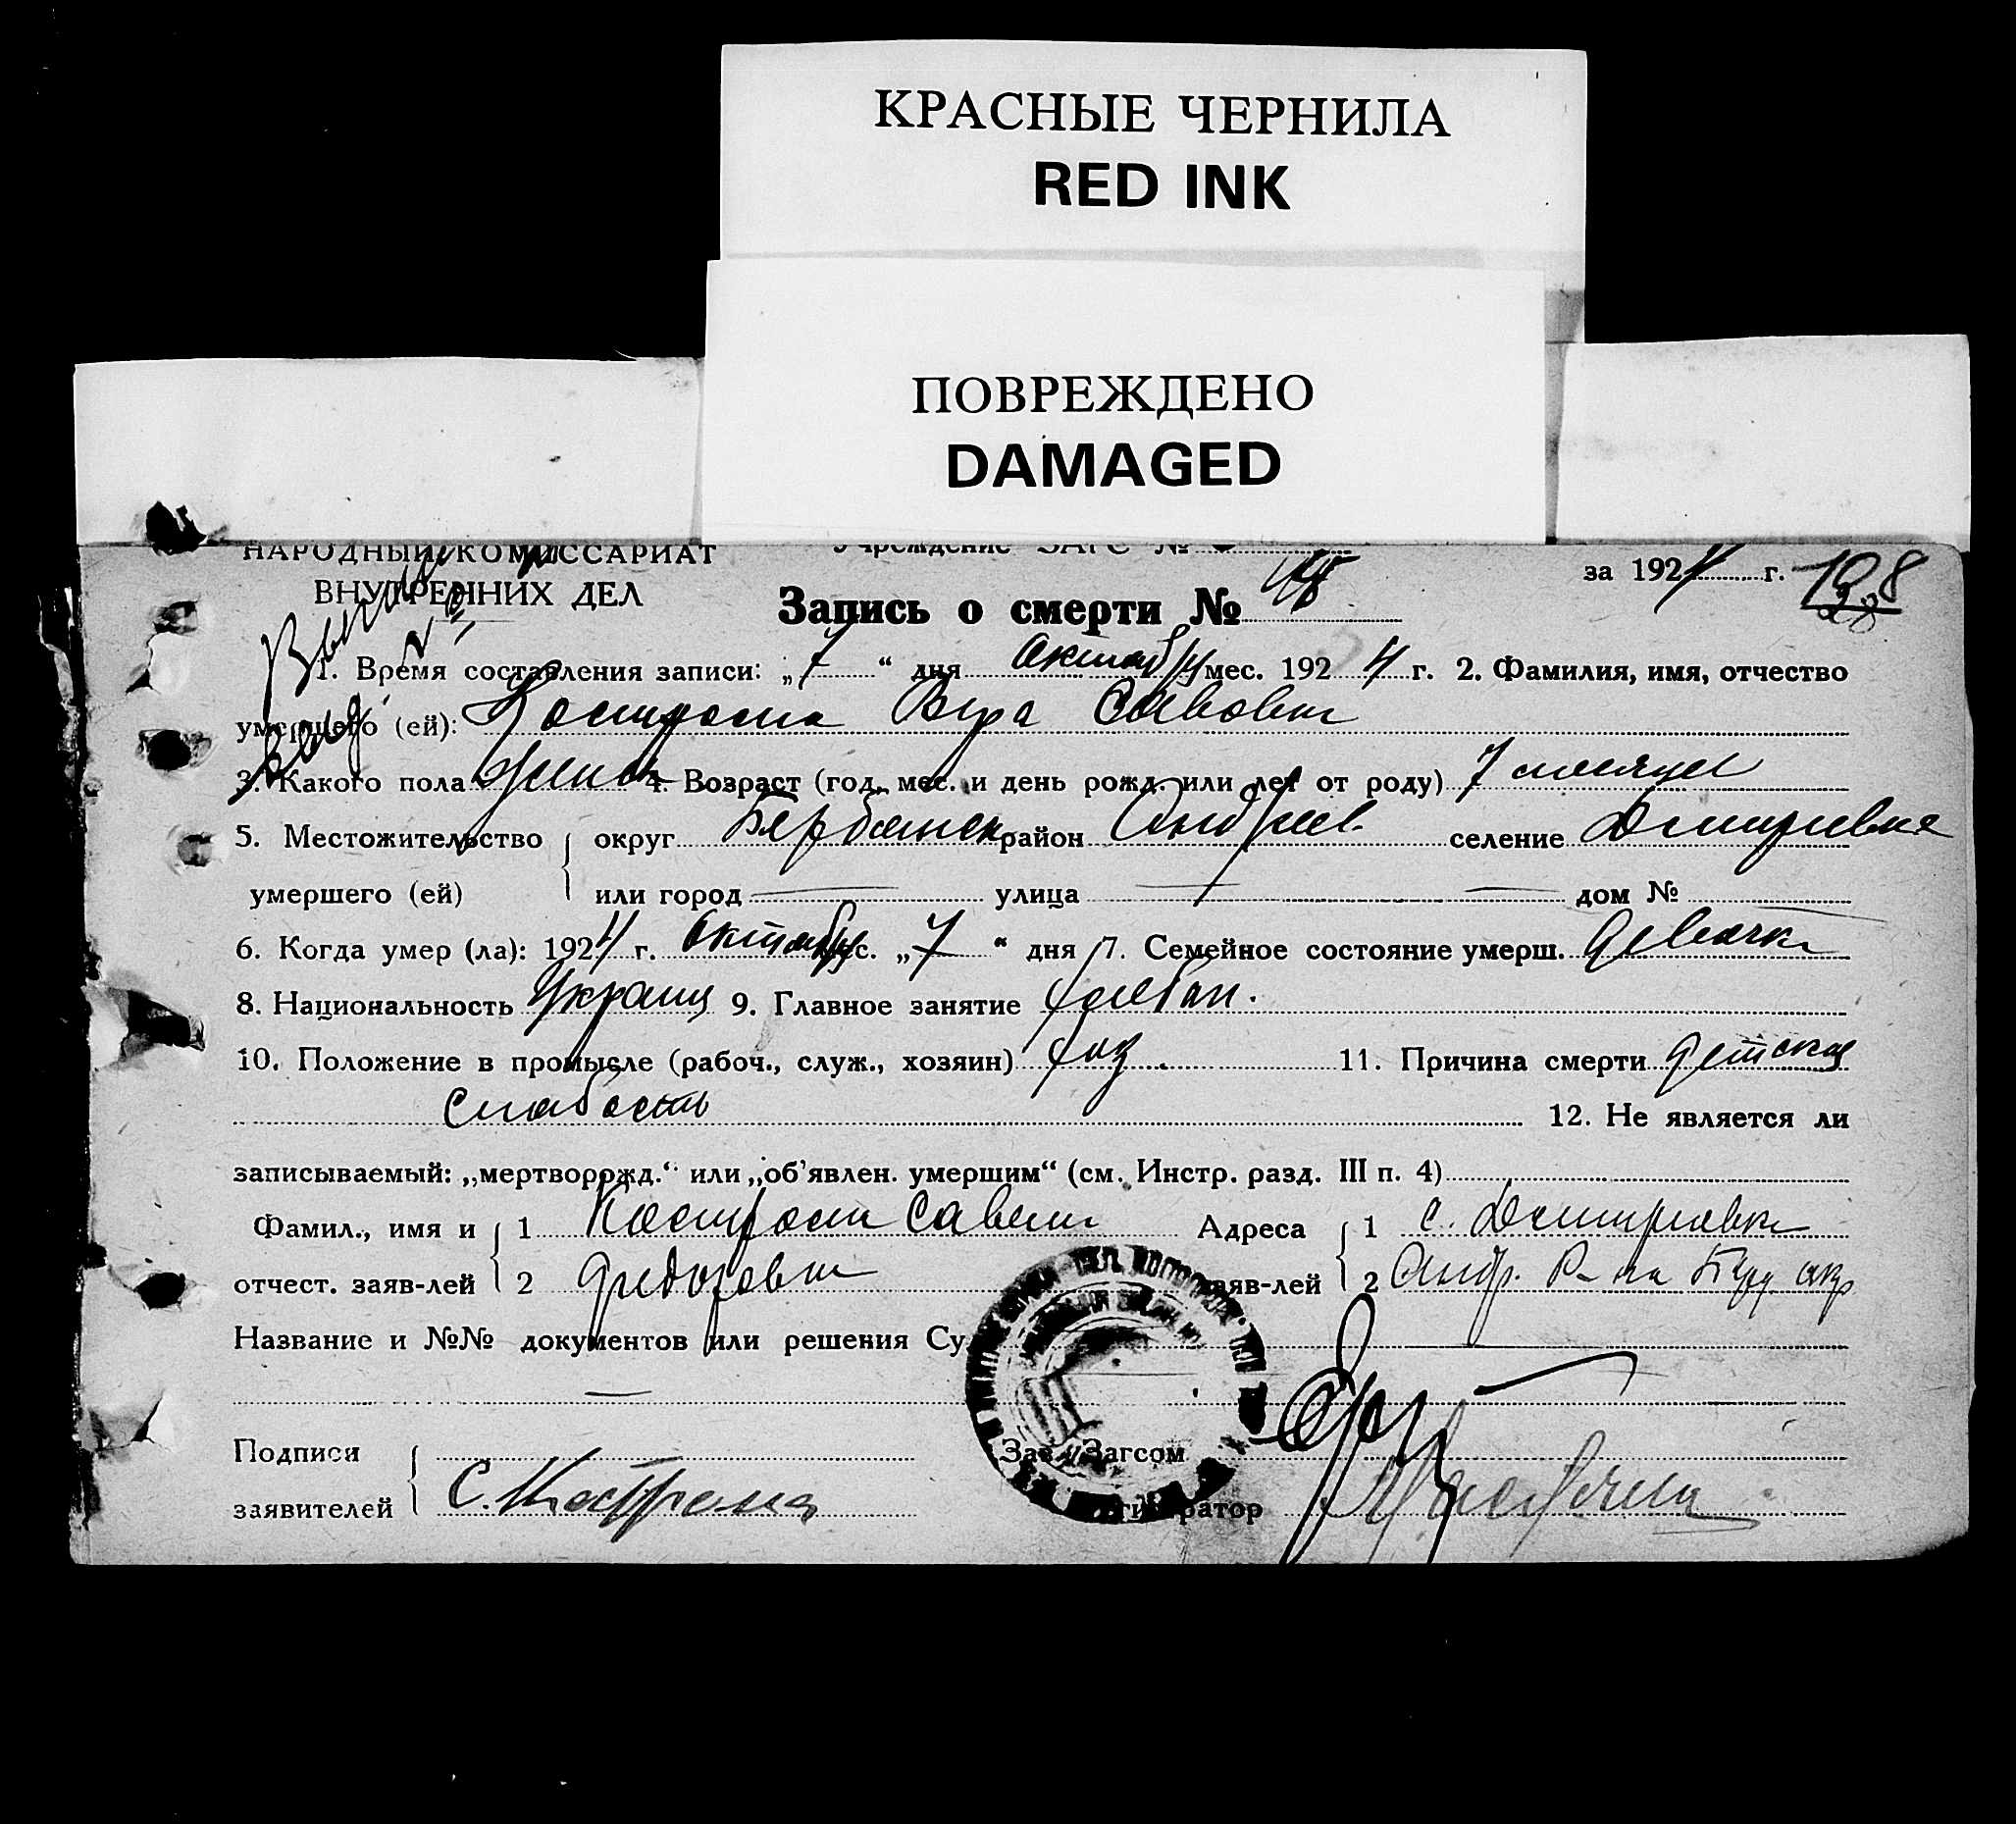 КРАСНЫЕ ЧЕРНИЛА
RED INK
ПОВРЕЖДЕНО
DAMAGED
НАРОДНЫЙ КОМИССАРИАТ Учреждение ЗАГС №
ВНУТРЕННИХ ДЕЛ за 1924 г.
Запись о смерти №
1. Время составления записи: „7“ дня октября мес. 1924 г. 2. Фамилия, имя, отчество
умершего (ей): Вера Савовна
3. Какого пола женск 4. Возраст (год, мес. и день рожд. или лет от роду) 7 месяцев
5. Местожительство округ Бердянск район Андреев. селение Дмитриевка
умершего (ей) или город — улица — дом №
6. Когда умер (ла): 1924 г. октября мес. „7“ дня 7. Семейное состояние умерш. девочка
8. Национальность Украин 9. Главное занятие хлебоп.
10. Положение в промысле (рабоч., служ., хозяин) хоз. 11. Причина смерти детская
слабость 12. Не является ли
записываемый: „мертворожд.“ или „об’явлен. умершим“ (см. Инстр. разд. III п. 4)
Фамил., имя и 1 Савелий Адреса 1 с. Дмитриевка
отчест. заяв-лей 2 Федорович заяв-лей 2 Андр. р-на Берд окр
Название и №№ документов или решения Су
—
Подписи Зав. Загсом
заявителей С. Кострома Регистратор